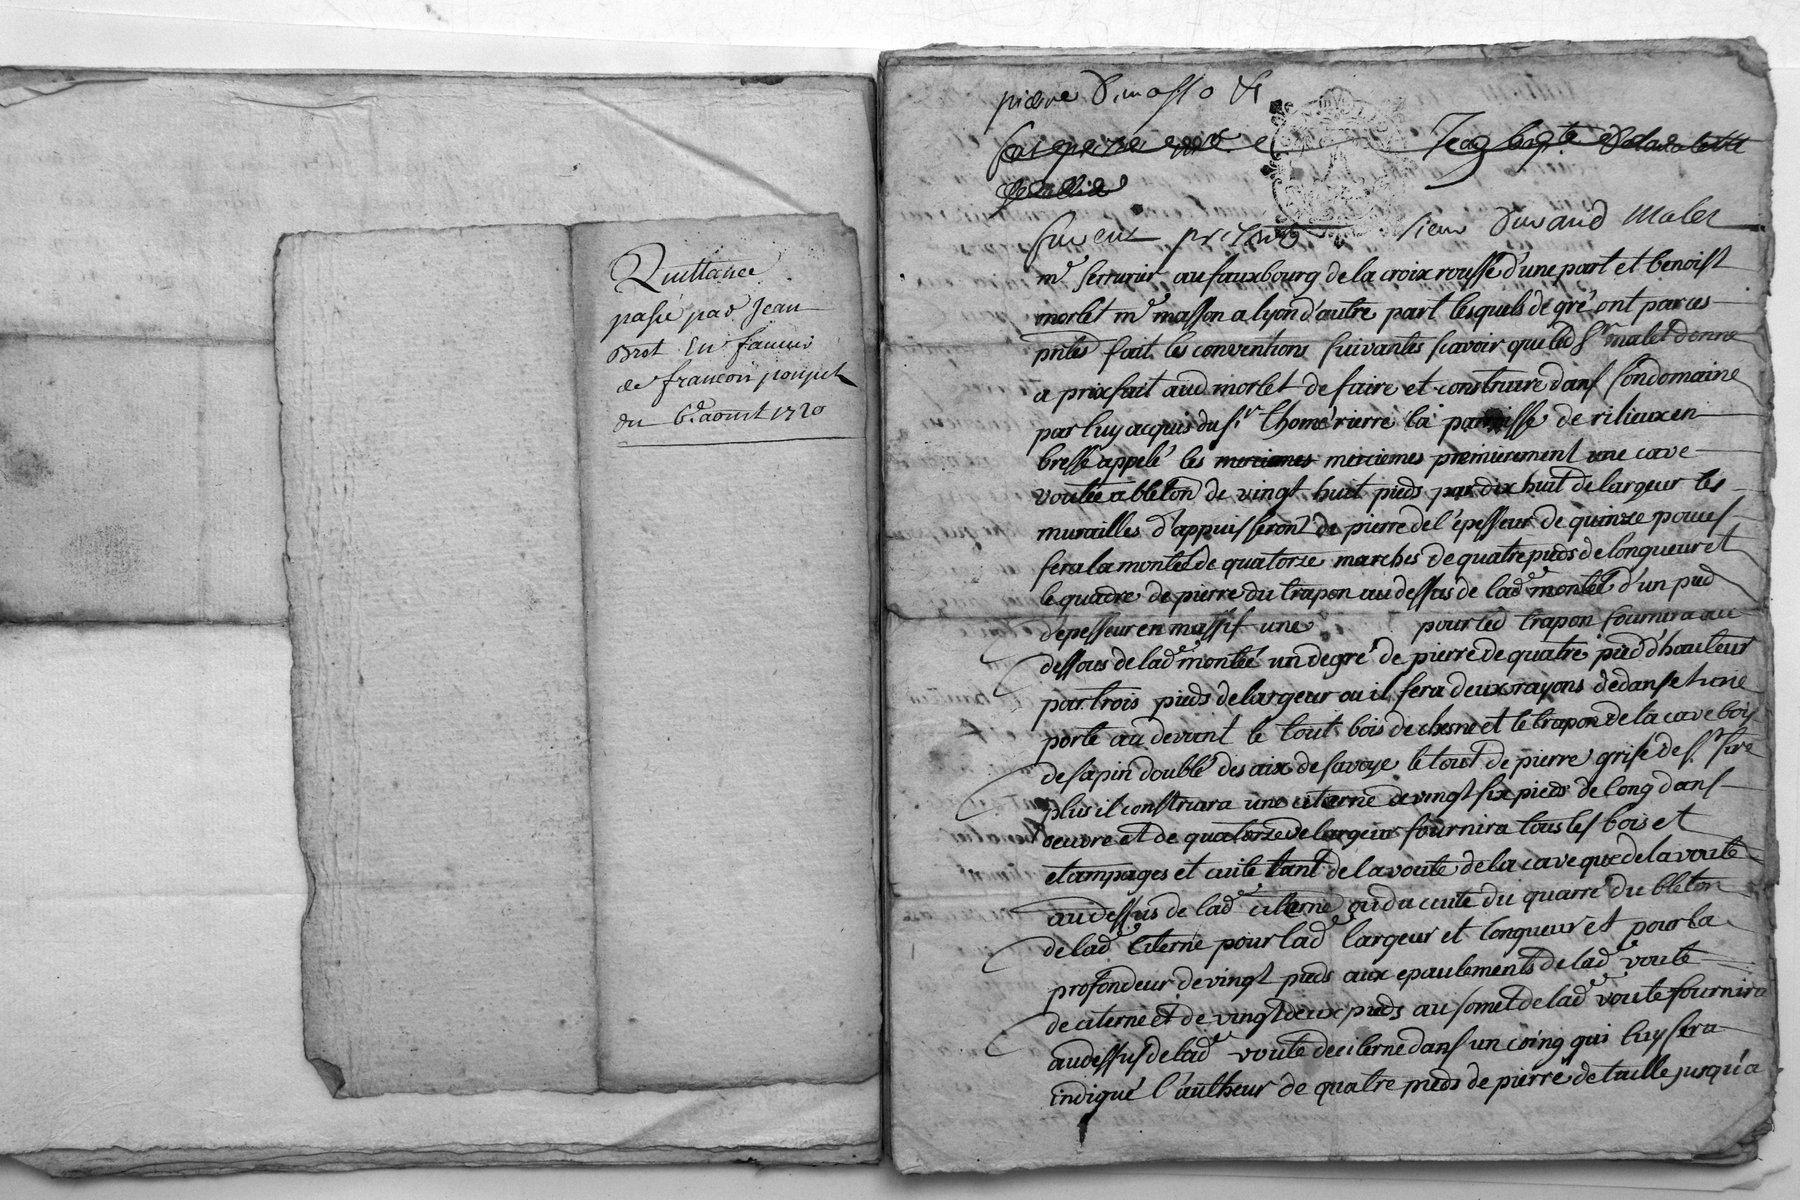 Quittance
passé par Jean
Brot En faueur
de francois poujet
du 6.e aoust 1720
pierre Dimasso &
furent presents sieur Durand Malet
m.e serrurier au fauxbourg de la croix rousse d'une part et benoist
morlet m.e masson a lyon d'autre part lesquels de gré ont par ces
pntes fait les conventions suivantes scavoir que led S.r malet donne
a prixfait aud morlet de faire et construire dans son domaine
par luy acquis du s.r thomé rierre la paroisse de rilieux en
bresse appelé les mercieres premierement une cave
voutée a bleton de vingt huit pieds par dix huit de largeur les
murailles d'appuis seront de pierre de l'epesseur de quinze pouces
fera la montée de quatorze marches de quatre pieds de longueur et
le quadre de pierre du trapon au dessus de lad.e montée d'un pied
depesseur en massif une pour led trapon fournira au
dessous de lad.e montée un degré de pierre de quatre pied d'hauteur
par trois pieds de largeur ou il fera deux rayons dedans et une
porte au devant le tout bois de chesne et le trapon de la cave bois
de sapin doublé des aix de savoye le tout de pierre grise de S.t
plus il construira une citerne de vingt six pieds de long dans
oeuvre et de quatorze de largeur fournira tous les bois et
etampages et cuite tant de la voute de la cave que de la voute
au dessus de lad.e citerne ou de cuite du quarré du bleton
de lad.e citerne pour lad.e largeur et longueur et pour la
profondeur de vingt pieds aux epaulements de lad.e voute
de citerne et de vingt deux pieds au somet de lad.e voute fournira
au dessus de lad.e voute de citerne dans un coing qui luy sera
indiqué l'autheur de quatre pieds de pierre de taille jusqu'a